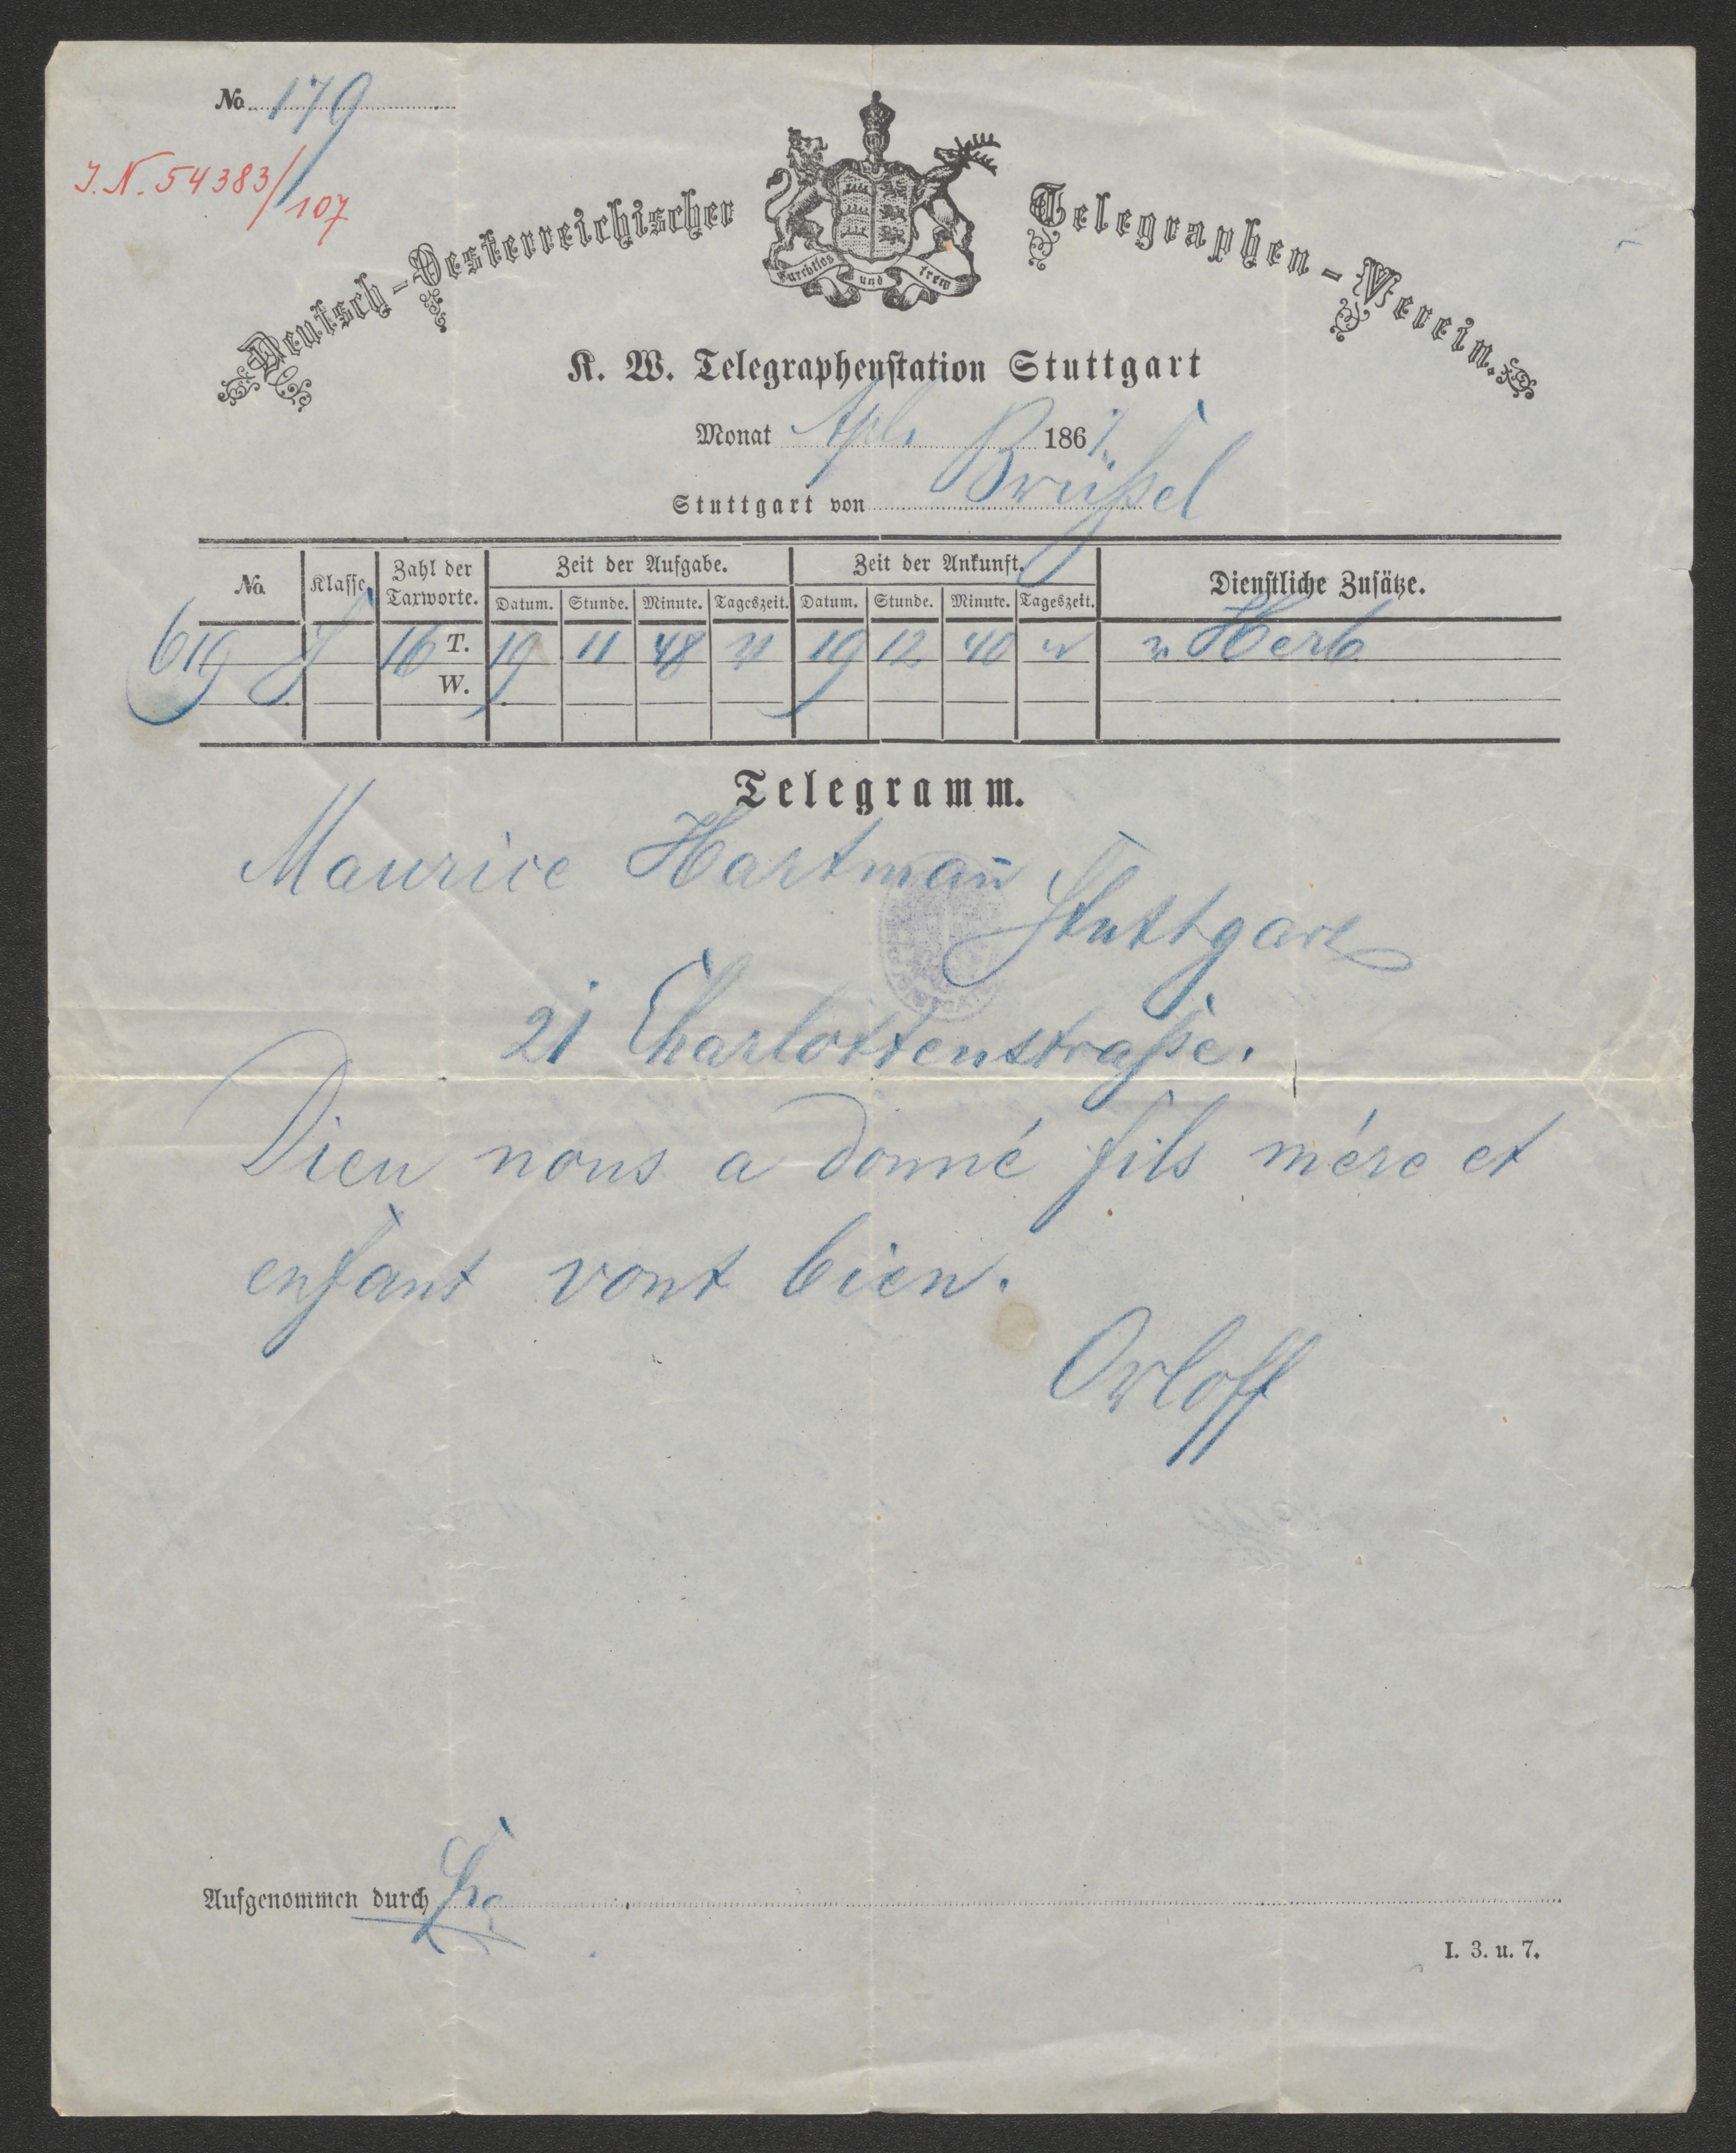 No. 179
J. N. 54383/107
Deutsch-Oesterreichischer Telegraphen-Verein.
Furchtlos und trew
K. W. Telegraphenstation Stuttgart
Monat Apl. 186
Stuttgart von Brüßel
No. Klasse. Zahl der Taxworte. Zeit der Aufgabe. Zeit der Ankunft. Dienstliche Zusätze.
Datum. Stunde. Minute. Tageszeit. Datum. Stunde. Minute. Tageszeit.
619 16 T. 19 11 48 19 12 40 Herb
W.
Telegramm.
Maurice Hartman̄
Stuttgart
21 Charlottenstraße.
Dieu nous a donné fils mére et
enfant vont bien.
Orloff
Aufgenommen durch
I. 3. u. 7.